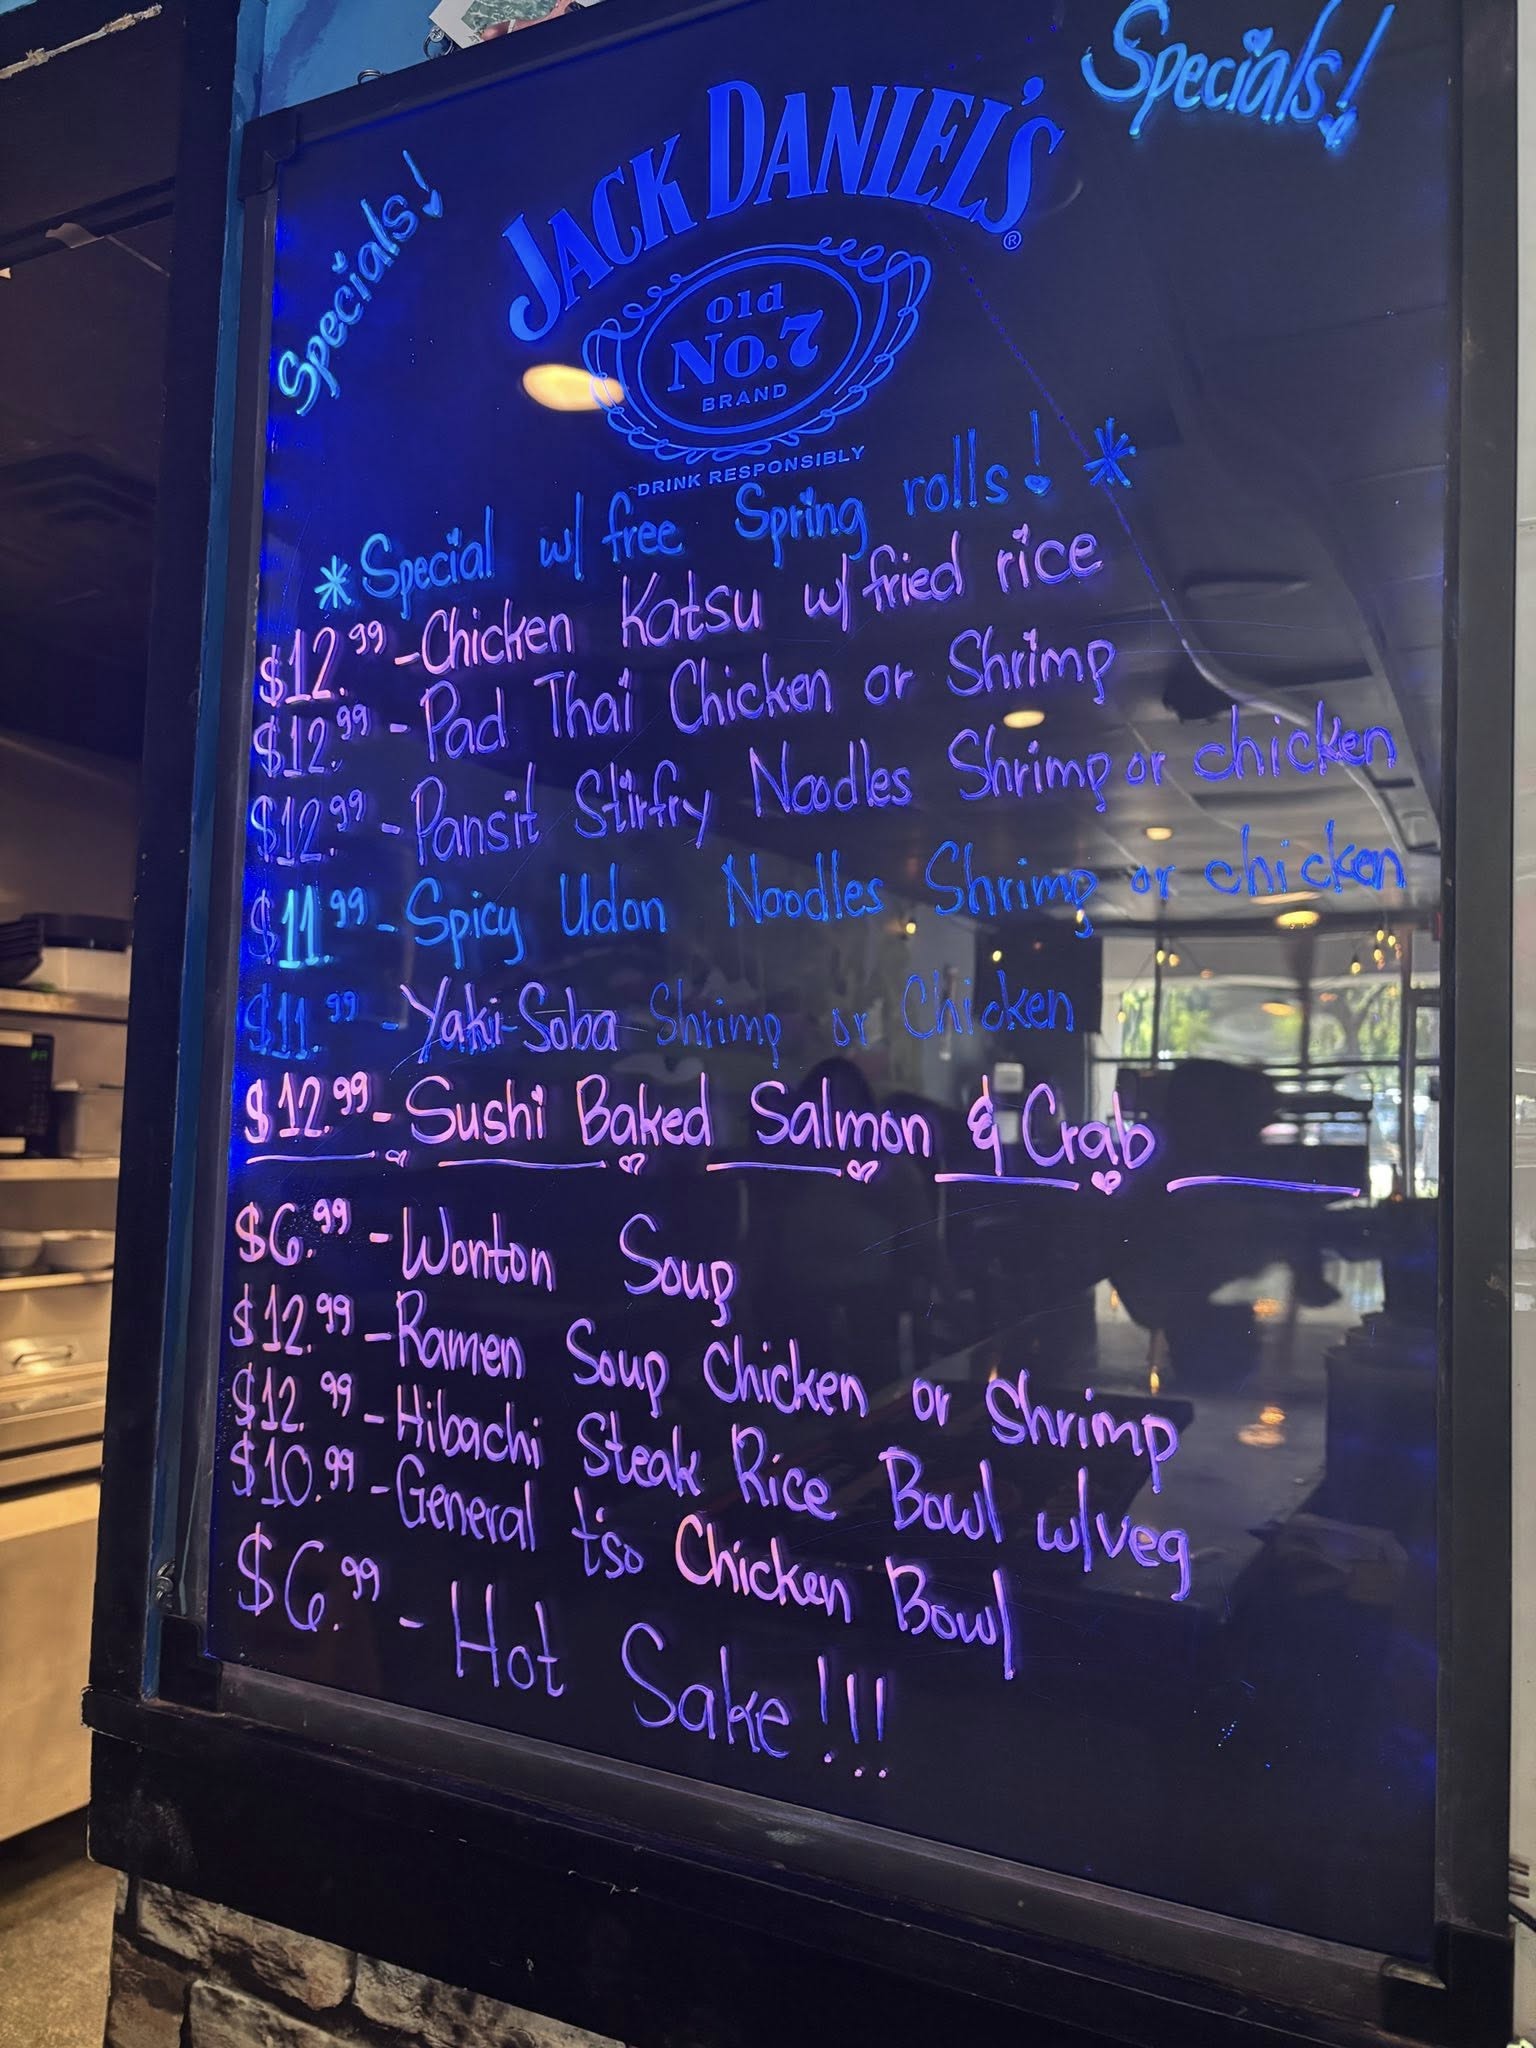 Specials!
Specials!
JACK DANIEL'S®
Old
No. 7
BRAND
DRINK RESPONSIBLY
*Special w/ free Spring rolls! *
$12.99 - Chicken Katsu w/ fried rice
$12.99 - Pad Thai Chicken or Shrimp
$12.99 - Pansit Stirfry Noodles Shrimp or chicken
$11.99 - Spicy Udon Noodles Shrimp or chicken
$11.99 - Yaki-Soba Shrimp or Chicken
$12.99 - Sushi Baked Salmon & Crab
$6.99 - Wonton Soup
$12.99 - Ramen Soup Chicken or Shrimp
$12.99 - Hibachi Steak Rice Bowl w/veg
$10.99 - General t'so Chicken Bowl
$6.99 - Hot Sake!!!